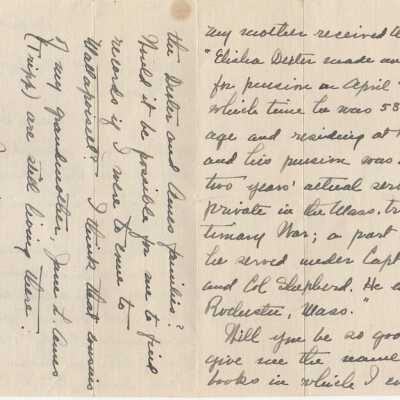 my mother received
"Elisha Dexter made
for pension on April
which time he was 58
age and residing at
and his pension was
two years' actual
private in the Mass.
tionary War; a part
he served under Capt
and Col Shepherd. He
Rochester, Mass."
Will you be so
give me the name
books in which I
the Dexter and Ames families?
Would it be possible for me to find
records if I were to come to
Mattapoisett? I think that cousins
of my grandmother, Jane L. Ames
(Tripp) are still living there.